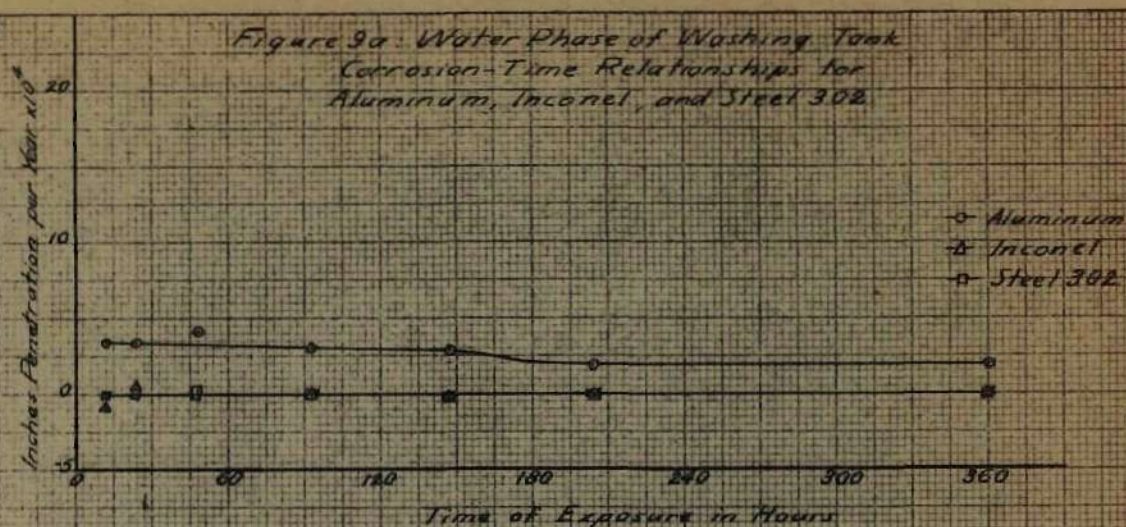 Figure 9a: Water Phase of Washing Tank
Corrosion-Time Relationships for
Aluminum, Inconel, and Steel 302
Inches Penetration per Year x10⁴
20
10
0
-5
Aluminum
Inconel
Steel 302
0 60 120 180 240 300 360
Time of Exposure in Hours